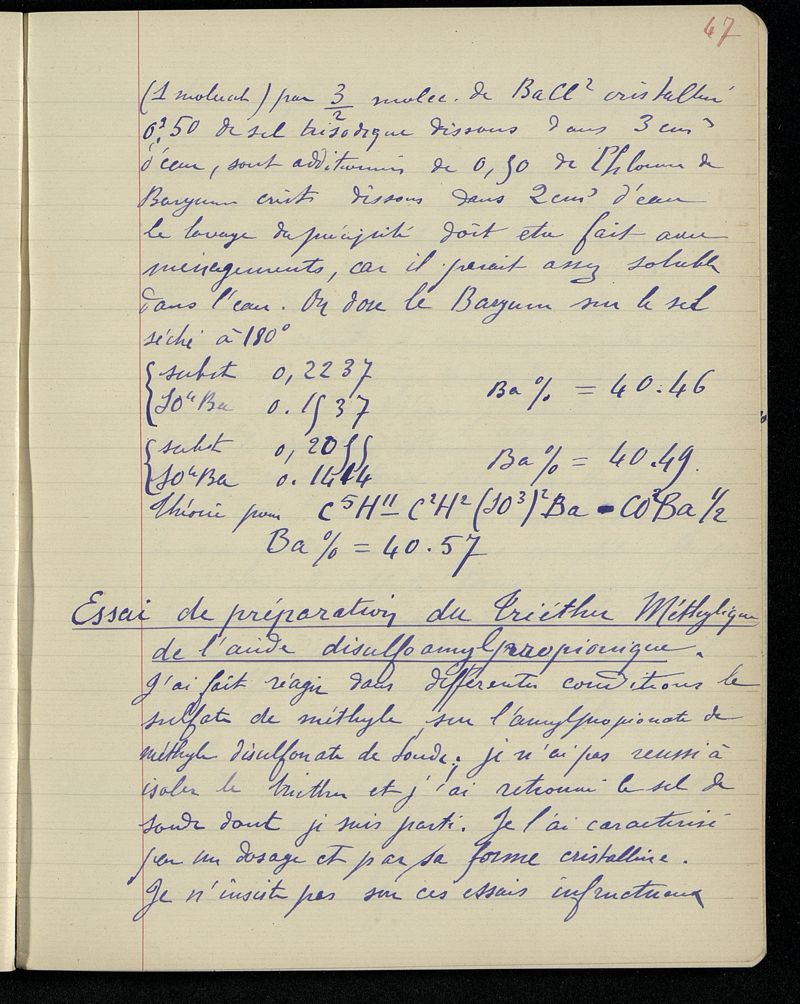 47
(1 molecule) par 3/2 molec. de BaCl² cristallisé
0,g50 de sel trisodique dissous dans 3 cm³
d'eau, sont additionnés de 0,50 de Chlorure de
Baryum crist. dissous dans 2 cm³ d'eau
le lavage du précipité doit etre fait avec
ménagements, car il parait assez soluble
dans l'eau. On dose le Baryum sur le sel
séché à 180°
{ subst 0,2237
Ba % = 40.46
{ SO⁴Ba 0.1537
{ subst 0,2055
Ba % = 40.49.
{ SO⁴Ba 0.1414
théorie pour C⁵H¹¹ – C²H² (SO³)² Ba - CO² Ba ½
Ba % = 40.57
Essai de préparation du triéther Méthylique
de l'acide disulfoamylpropionique.
J'ai fait réagir dans différentes conditions le
sulfate de méthyle sur l'amylpropionate de
méthyle disulfonate de soude; je n'ai pas reussi à
isoler le triéther et j'ai retrouvé le sel de
soude dont je suis parti. Je l'ai caractérisé
par un dosage et par sa forme cristalline.
Je n'insiste pas sur ces essais infructueux